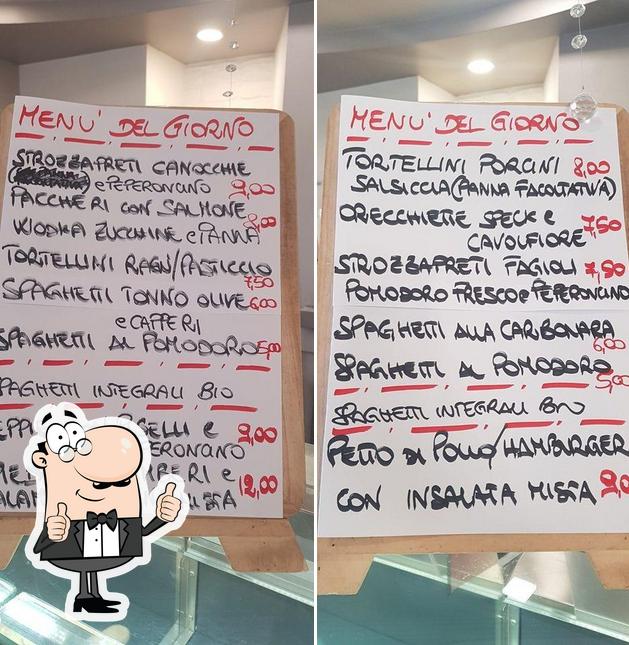 MENU' DEL GIORNO
STROZZAFRETI CANOCCHIE
e PEPERONCINO 9,00
PACCHERI CON SALMONE
WODKA ZUCCHINE e PANNA 8,00
TORTELLINI RAGÙ/PASTICCIO
7,50
SPAGHETTI TONNO OLIVE 6,00
e CAPPERI
SPAGHETTI AL POMODORO 5,00
SPAGHETTI INTEGRALI BIO
9,00
12,00
MENU' DEL GIORNO
TORTELLINI PORCINI 8,00
SALSICCIA (PANNA FACOLTATIVA)
ORECCHIETTE SPECK e 7,50
CAVOLFIORE
STROZZAFRETI FAGIOLI 7,50
POMODORO FRESCO e PEPERONCINO
SPAGHETTI ALLA CARBONARA
6,00
SPAGHETTI AL POMODORO
5,00
SPAGHETTI INTEGRALI BIO
PETTO DI POLLO/HAMBURGER
CON INSALATA MISTA 9,0